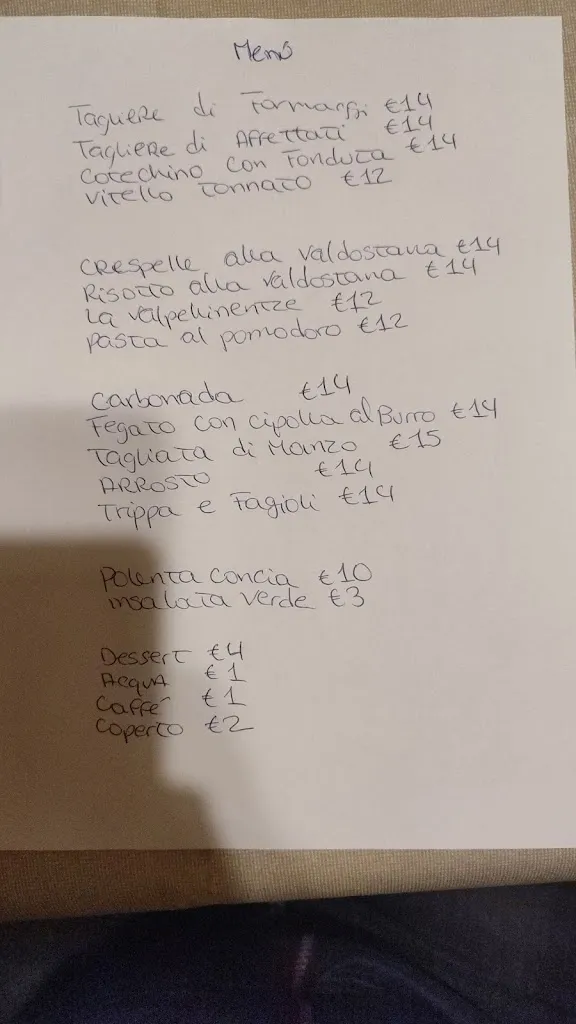 Menù
Tagliere di Formaggi €14
Tagliere di Affettati €14
Cotechino con Fonduta €14
Vitello Tonnato €12
CRespelle alla Valdostana €14
Risotto alla Valdostana €14
La Valpellinentze €12
Pasta al pomodoro €12
Carbonada €14
Fegato con cipolla al Burro €14
Tagliata di Manzo €15
ARROSTO €14
Trippa e Fagioli €14
Polenta concia €10
insalata verde €3
Dessert €4
Acqua €1
Caffé €1
Coperto €2